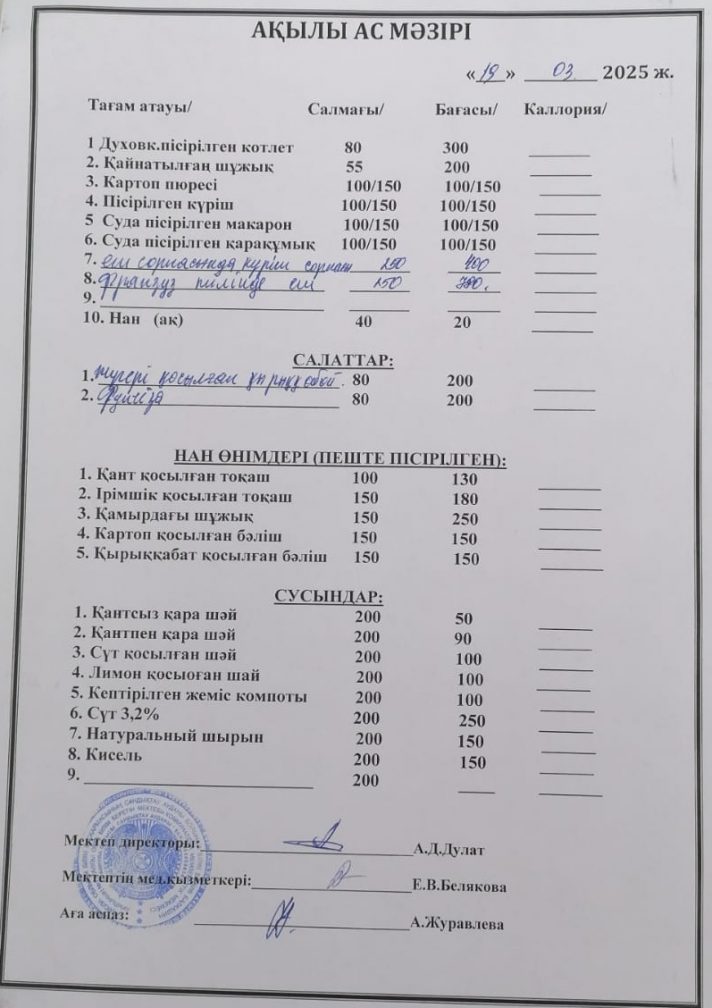 АҚЫЛЫ АС МӘЗІРІ
«19» 03 2025 ж.
Тағам атауы/ Салмағы/ Бағасы/ Каллория/
1 Духовк.пісірілген котлет 80 300
2. Қайнатылғаң шұжық 55 200
3. Картоп пюресі 100/150 100/150
4. Пісірілген күріш 100/150 100/150
5 Суда пісірілген макарон 100/150 100/150
6. Суда пісірілген қарақұмық 100/150 100/150
7. ет сорпасында күріш сорпат 250 400
8. Француз тілінде ет 150
9.
10. Нан (ақ) 40 20
САЛАТТАР:
1. жүгері қосылған 80 200
2. 80 200
НАН ӨНІМДЕРІ (ПЕШТЕ ПІСІРІЛГЕН):
1. Қант қосылған тоқаш 100 130
2. Ірімшік қосылған тоқаш 150 180
3. Қамырдағы шұжық 150 250
4. Картоп қосылған бәліш 150 150
5. Қырыққабат қосылған бәліш 150 150
СУСЫНДАР:
1. Қантсыз қара шәй 200 50
2. Қантпен қара шәй 200 90
3. Сүт қосылған шәй 200 100
4. Лимон қосыоған шай 200 100
5. Кептірілген жеміс компоты 200 100
6. Сүт 3,2% 200 250
7. Натуральный шырын 200 150
8. Кисель 200 150
9. 200
Мектеп директоры: А.Д.Дулат
Мектептің мед.кызметкері: Е.В.Белякова
Аға аспаз: А.Журавлева